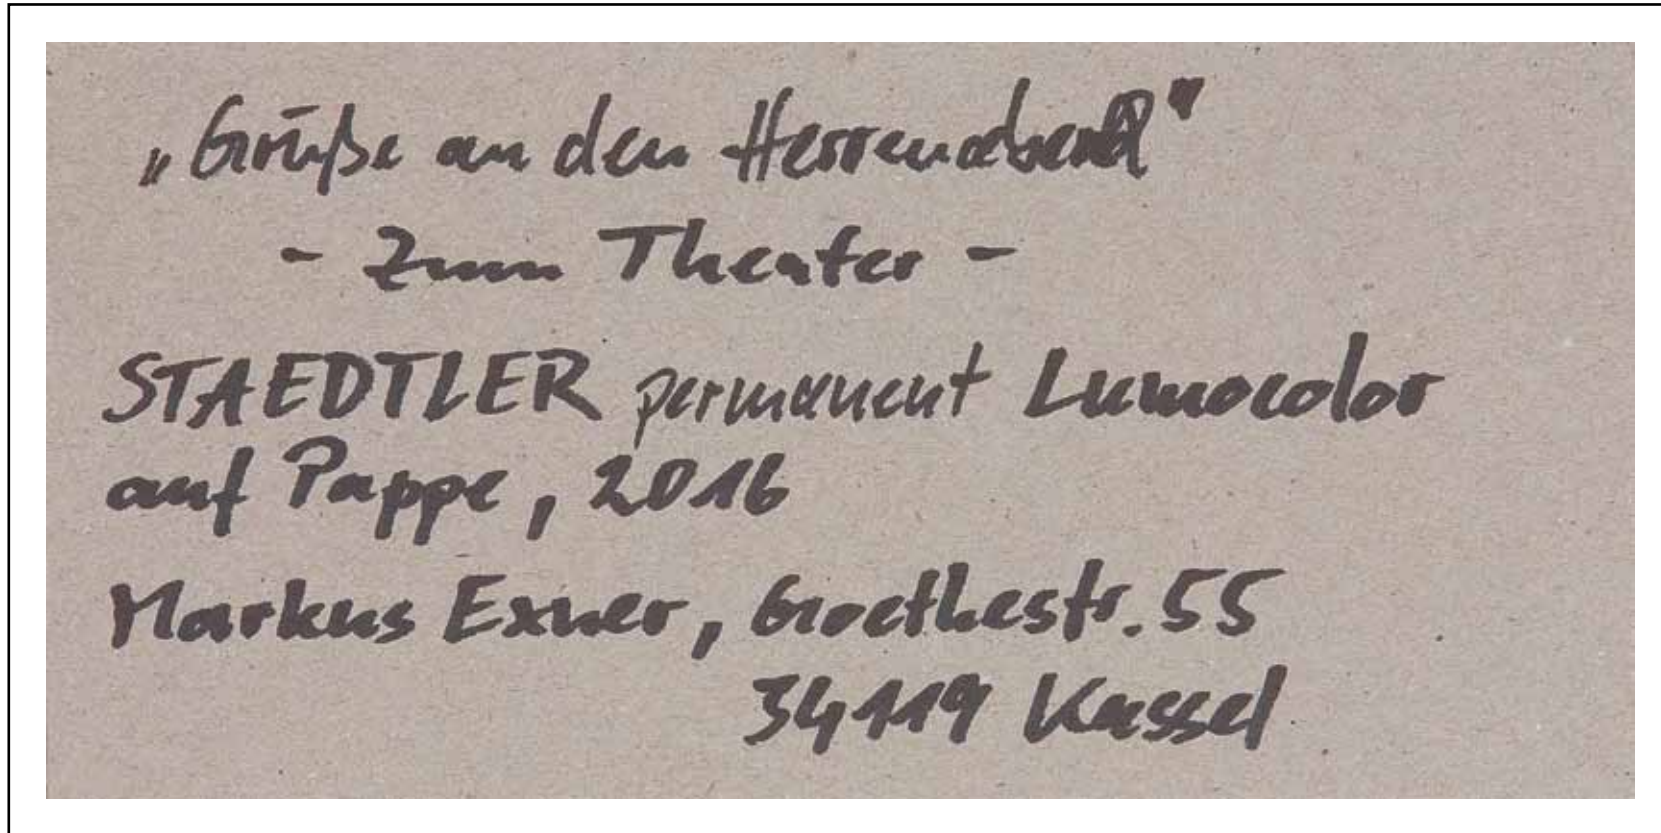 „Grüße an den Herrenabend"
- Zum Theater -
STAEDTLER permanent Lumocolor
auf Pappe, 2016
Markus Exner, Goethestr. 55
34119 Kassel